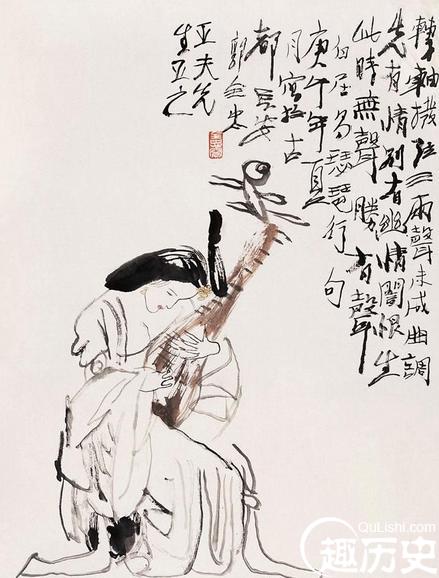 轉軸撥弦三兩聲未成曲調
先有情別有幽情闇恨生
此時無聲勝有聲
白居易琵琶行句
庚午年夏
月寫於古
都長安
郭全忠
亚夫先
生正之
QuLishi.com
趣历史